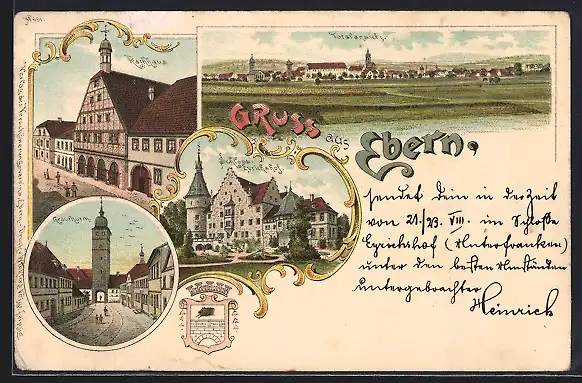 Rathhaus
Totalansicht.
Gruss
aus
Ebern.
Schloss
Eyrichshof.
Grauthurm
EBERN
sendet Dein in der Zeit
von 21./23. VIII. im Schloße
Eyrichshof (Unterfranken)
unter den besten Umständen
untergebrachter
Heinrich